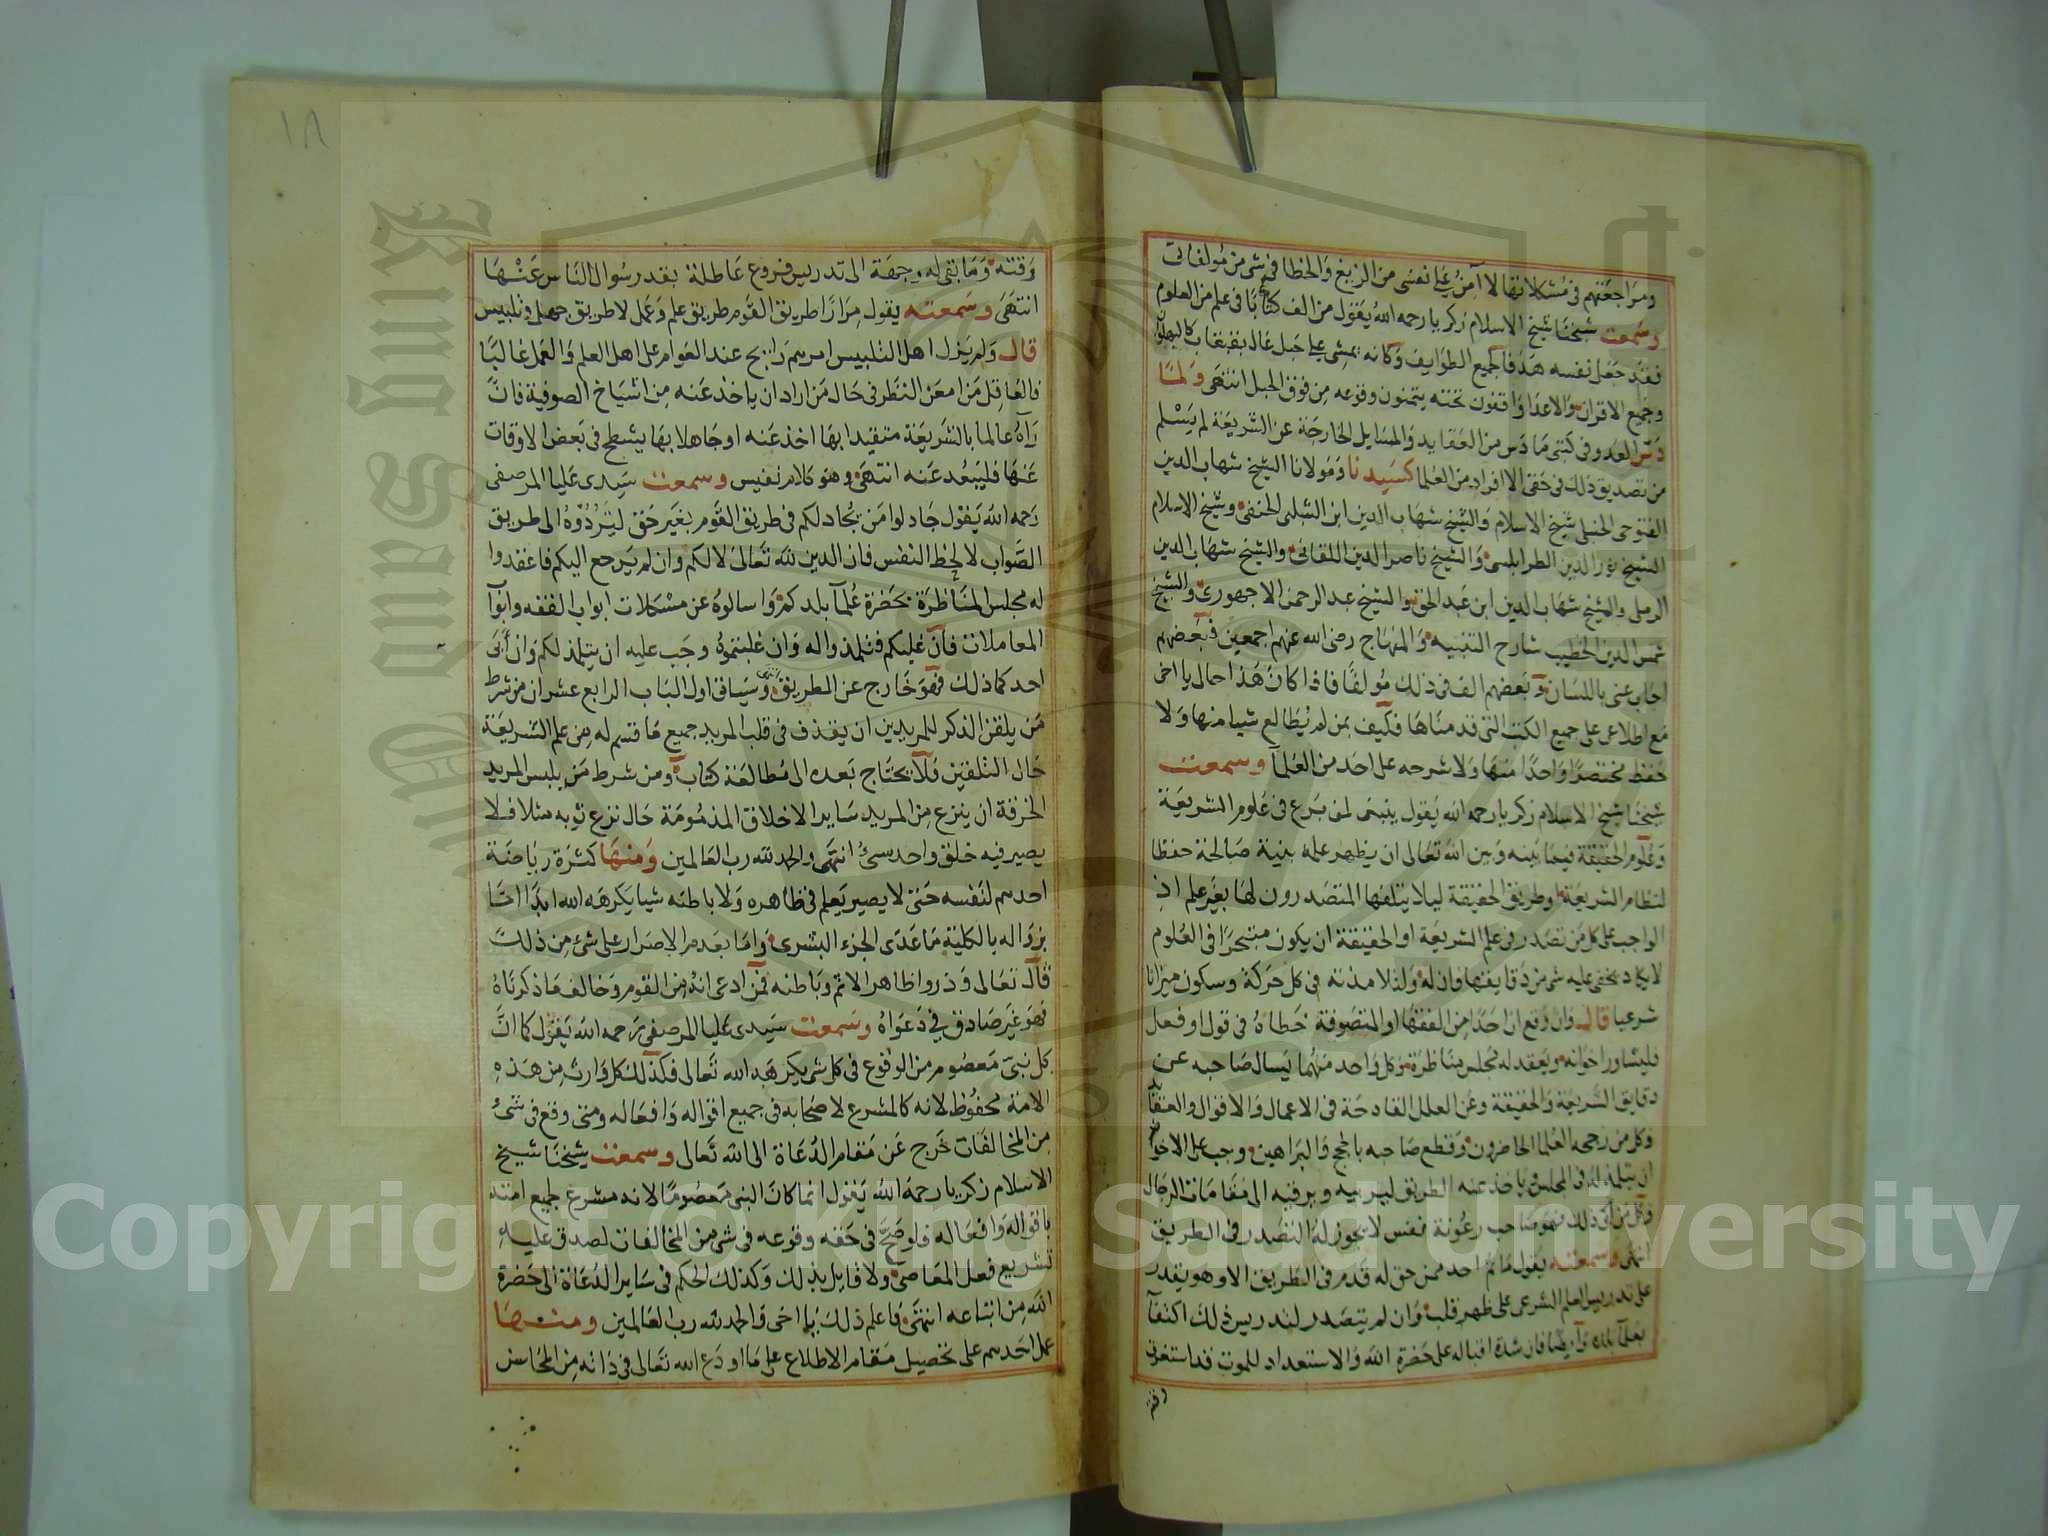 ومراجعتهم في مشكلاتها لا آمن على نفسي من الزيغ والخطا في شي من مولفاتي
وسمعت شيخنا شيخ الاسلام زكريا رحمه الله يقول من الف كتابا في علم من العلوم
فقد جعل نفسه هدفا لجميع الطوايف وكانه يمشي على حبل عال بقبقاب كالبهلوان
وجميع الاقران والاعدا واقفون تحته يتمنون وقوعه من فوق الحبل انتهى ولما
دس العدو في كتبي ما دس من العقايد والمسايل الخارجة عن الشريعة لم يسلم
من تصديق ذلك في حقى الا افراد من العلما كسيدنا ومولانا الشيخ شهاب الدين
الفتوحي الحنبلي شيخ الاسلام والشيخ شهاب الدين ابن الشلبي الحنفي وشيخ الاسلام
الشيخ نور الدين الطرابلسي والشيخ ناصر الدين اللقاني والشيخ شهاب الدين
الرملي والشيخ شهاب الدين ابن عبد الحق والشيخ عبد الرحمن الاجهوري والشيخ
شمس الدين الخطيب شارح التنبيه والمنهاج رضي الله عنهم اجمعين فبعضهم
اجاب عني باللسان وبعضهم الف في ذلك مولفا فاذا كان هذا حالي يا اخي
مع اطلاعي على جميع الكتب التي قدمناها فكيف بمن لم يطالع شيا منها ولا
حفظ مختصرا واحدا منها ولا شرحه على احد من العلمآ وسمعت
شيخنا شيخ الاسلام زكريا رحمه الله يقول ينبغي لمن برع في علوم الشريعة
وعلوم الحقيقة فيما بينه وبين الله تعالى ان يظهر علمه بنية صالحة حفظا
لنظام الشريعة وطريق الحقيقة ليلا يتلفها المتصدرون لها بغير علم اذ
الواجب على كل من تصدر في علم الشريعة او الحقيقة ان يكون متبحرا في العلوم
لا يكاد يخفى عليه شي من دقايقها فان له ولتلامذته في كل حركة وسكون ميزانا
شرعيا قال وان وقع ان احدا من الفقها او المتصوفة خطاه في قول او فعل
فليشاور اخوانه ويعقد له مجلس مناظرة وكل واحد منهما يسال صاحبه عن
دقايق الشريعة والحقيقة وعن العلل القادحة في الاعمال والاقوال والعقايد
وكل من رجحه العلما الحاضرون وقطع صاحبه بالحجج والبراهين وجب على الاخوان
ان يتلمذ له في المجلس وياخذ عنه الطريق ليربيه ويرقيه الى مقامات الرجال
وكل من ابى ذلك فهو صاحب رعونة نفس لا يجوز له التصدر في الطريق
انتهى وسمعته يقول ما ثم احد ممن حق له قدم في الطريق الا وهو يقدر
على تدريس العلم الشرعي على ظهر قلب وان لم يتصدر لتدريس ذلك اكتفآ
بعلمآ بلده وايضا فان شدة اقباله على حضرة الله والاستعداد للموت قد استغرق
وقته
١٨
وقته وما بقى له وجهة الى تدريس فروع عاطلة بقدر سوال الناس عنها
انتهى وسمعته يقول مرارا طريق القوم طريق علم وعمل لا طريق جهل وتلبيس
قال ولم يزل اهل التلبيس امرهم رابح عند العوام على اهل العلم والعمل غالبا
فالعاقل من امعن النظر في حال من اراد ان ياخذ عنه من اشياخ الصوفية فان
رآه عالما بالشريعة متقيدا بها اخذ عنه او جاهلا بها يشطح في بعض الاوقات
عنها فليبعد عنه انتهى وهو كلام نفيس وسمعت سيدي عليا المرصفي
رحمه الله يقول جادلوا من يجادلكم في طريق القوم بغير حق لتردوه الى طريق
الصواب لا لحظ النفس فان الدين لله تعالى لا لكم وان لم يرجع اليكم فاعقدوا
له مجلس المناظرة بحضرة علمآ بلدكم واسالوه عن مشكلات ابواب الفقه وابواب
المعاملات فان غلبكم فتلمذوا له وان غلبتموه وجب عليه ان يتلمذ لكم وان ابى
احدكما ذلك فهو خارج عن الطريق وسياتي اول الباب الرابع عشر ان من شرط
من يلقن الذكر للمريدين ان يقذف في قلب المريد جميع ما قسم له من علم الشريعة
حال التلقين فلا يحتاج بعده الى مطالعة كتاب ومن شرط من يلبس المريد
الخرقة ان ينزع من المريد ساير الاخلاق المذمومة حال نزع ثوبه مثلا فلا
يصير فيه خلق واحد سئ انتهى والحمد لله رب العالمين ومنها كثرة رياضة
احدهم لنفسه حتى لا يصير يعلم في ظاهره ولا باطنه شيا يكرهه الله ابدا اما
بزواله بالكلية ما عدى الجزء البشري واما بعدم الاصرار على شئ من ذلك
قال تعالى وذروا ظاهر الاثم وباطنه فمن ادعى انه من القوم وخالف ما ذكرناه
فهو غير صادق في دعواه وسمعت سيدي عليا المرصفي رحمه الله يقول كما ان
كل نبي معصوم من الوقوع في كل شي يكرهه الله تعالى فكذلك كل وارث من هذه
الامة محفوظ لانه كالمشرع لاصحابه في جميع اقواله وافعاله ومتى وقع في شئ
من المخالفات خرج عن مقام الدعاة الى الله تعالى وسمعت شيخنا شيخ
الاسلام زكريا رحمه الله يقول انما كان النبي معصوما لانه مشرع لجميع امته
باقواله وافعاله فلو صح في حقه وقوعه في شي من المخالفات لصدق عليه
تشريع فعل المعاصي ولا قايل بذلك وكذلك الحكم في ساير الدعاة الى حضرة
الله من اتباعه انتهى فاعلم ذلك يا اخى والحمد لله رب العالمين ومنها
عمل احدهم على تحصيل مقام الاطلاع على ما اودع الله تعالى في ذاته من المحاسن
King Saud University
Copyright © King Saud University